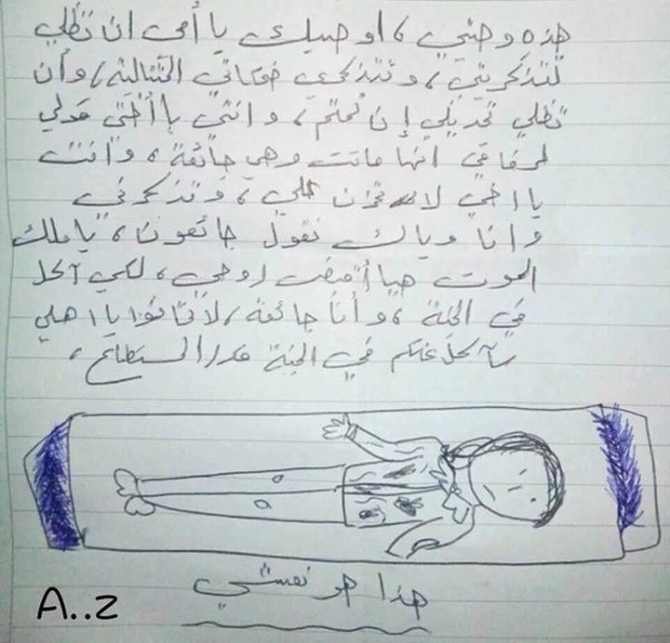 هذه وصيتي، اوصيك يا أمي ان تظلي
تتذكريني، وتتذكري ضحكاتي التتالية، وأن
تظلي تحديلي إن نمتم، وانتي يا أختي قولي
لرفاقي انها ماتت وهي جائعة، وأنت
يا اخي لا تحزن علي، وتذكرني
وانا وياك نقول جائعون، يا ملك
الموت هيا أقبض روحي، لكي آكل
في الجنة، وأنا جائعة، لا تخافوا يا اهلي
سآكل عنكم في الجنة قدر المستطاع،
هذا هو نعشي
A..z